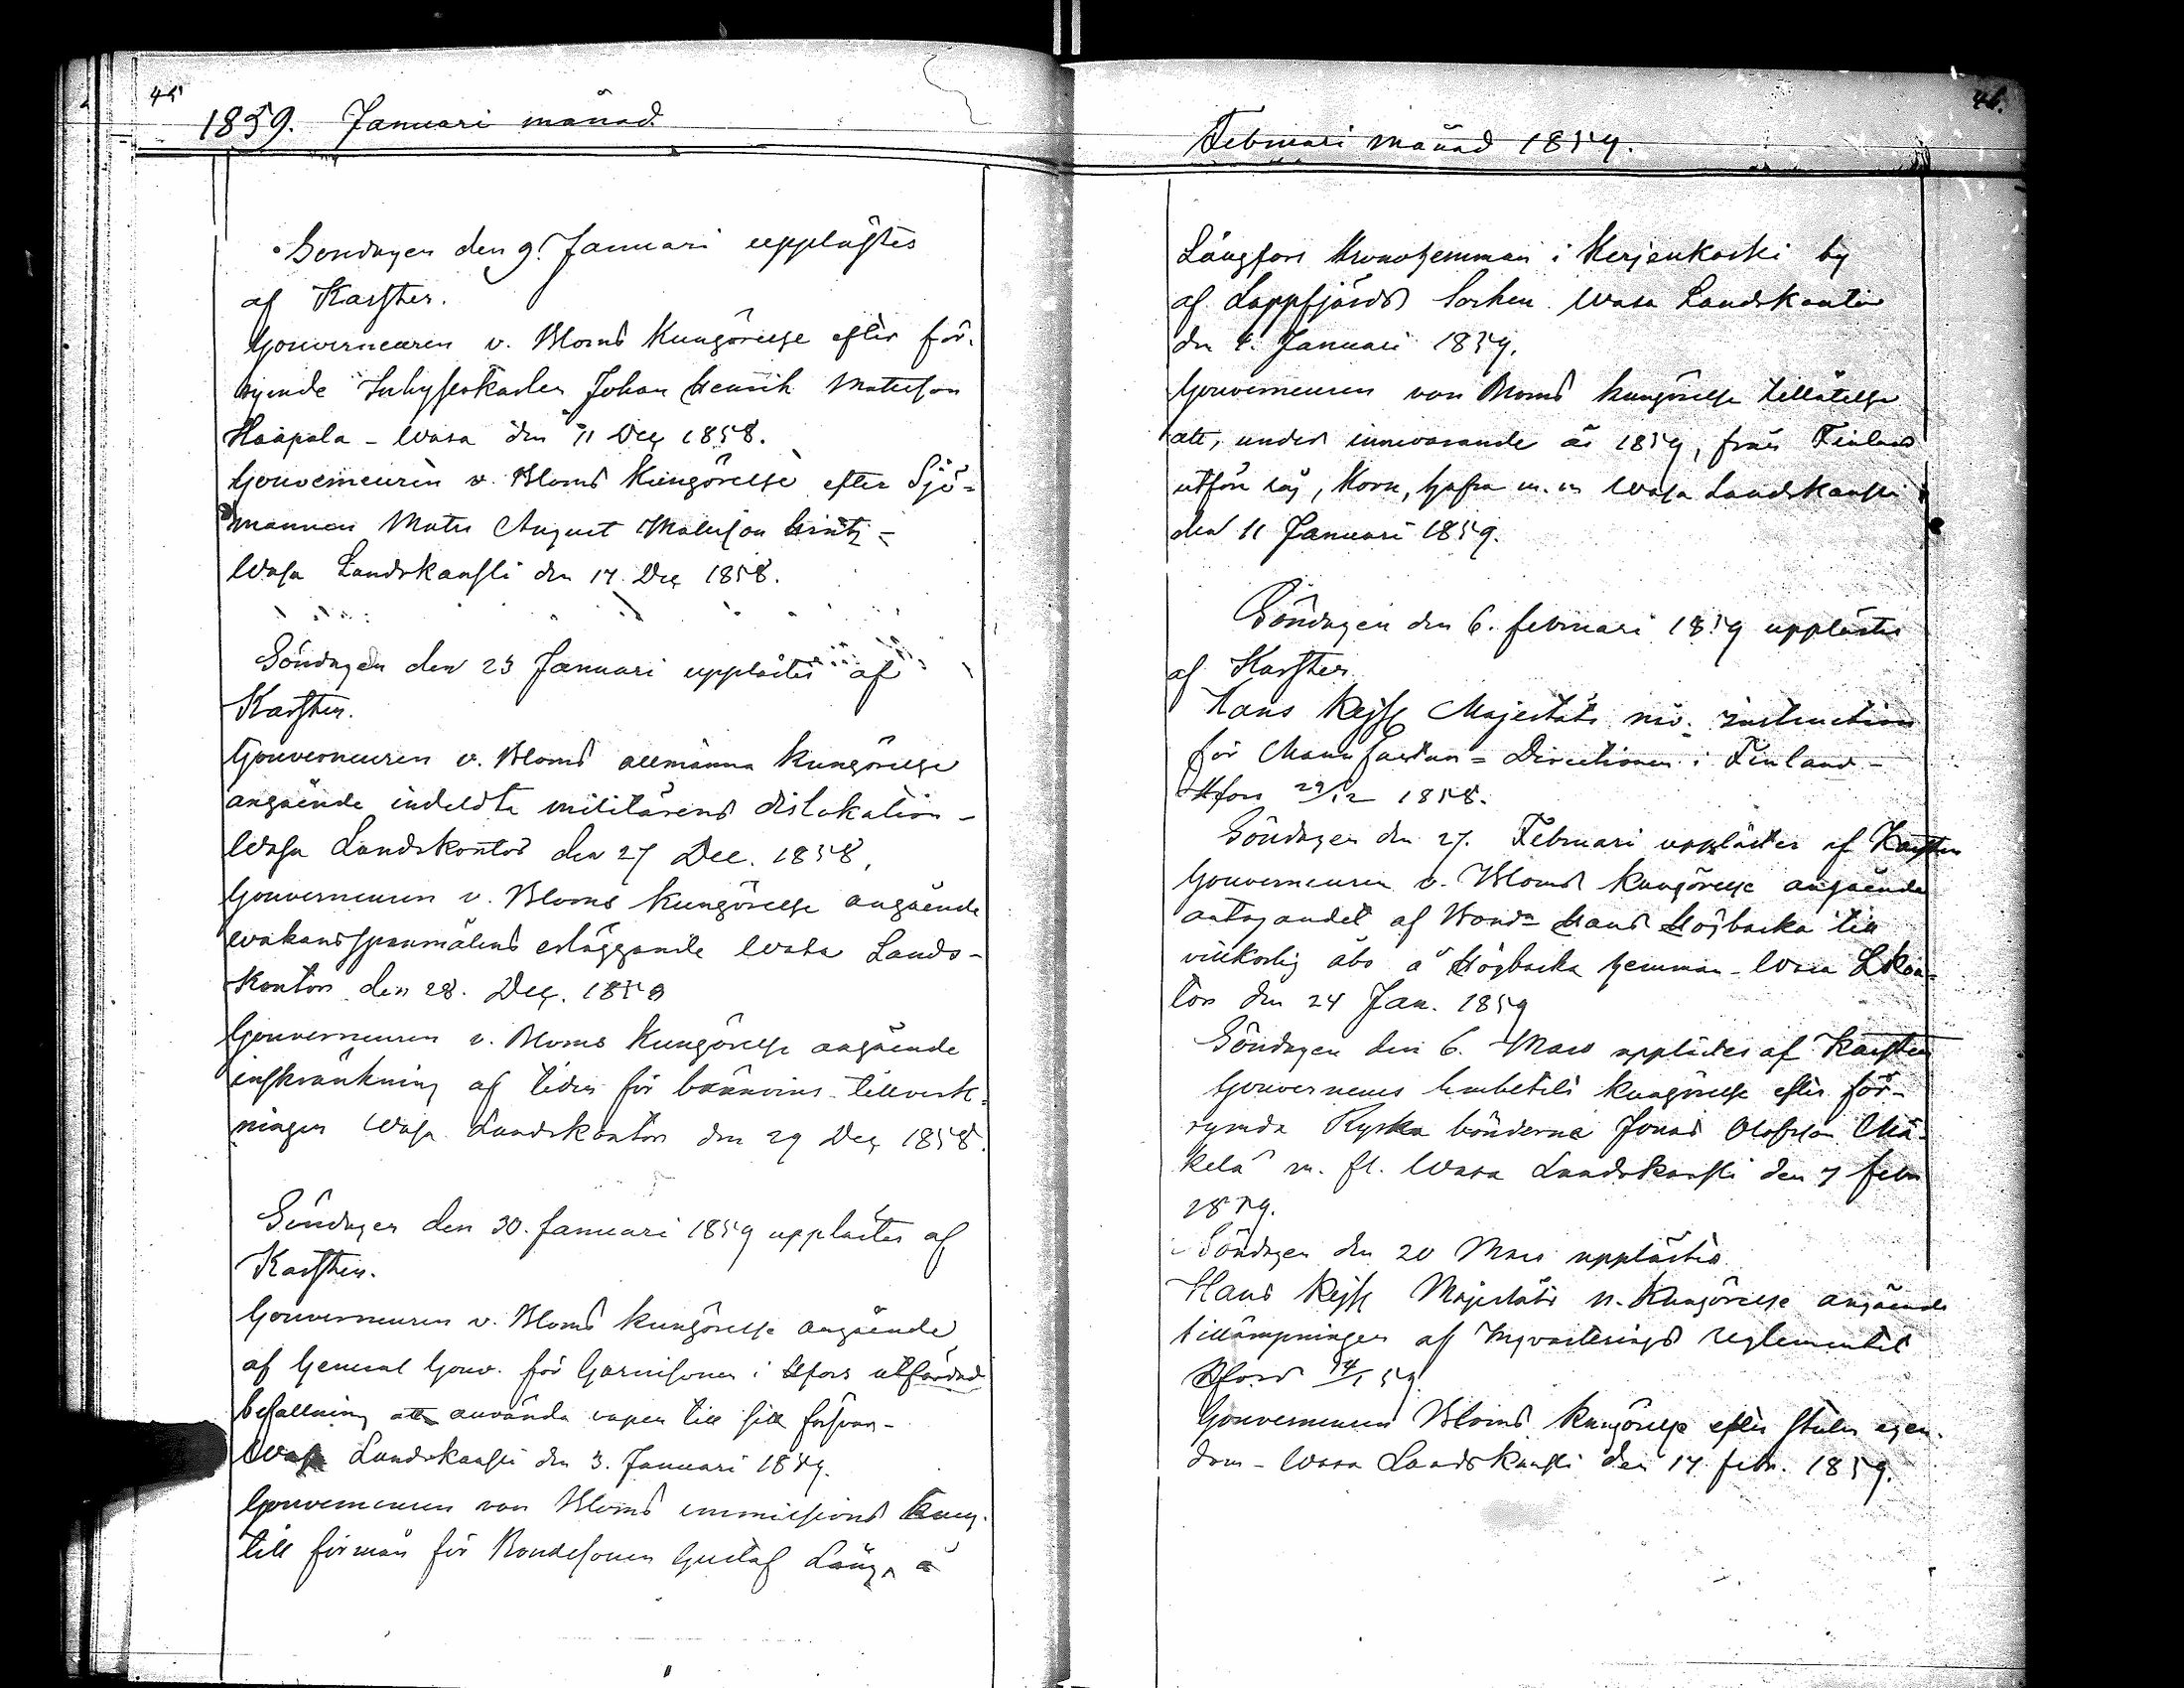 45
1859. Januari månad
Söndagen den 9. Januari upplästes
af Karsten.
Gouverneuren v. Bloms Kungörelse efter för-
rymde Johan Henrik Matsson
Haapala - Wasa den 11 Dec 1858.
Gouverneuren v. Bloms Kungörelse efter Sjö-
mannen Mats August Matsson
Wasa Landskansli den 17 Dec 1858.
Söndagen den 23 Januari upplästes af
Karsten.
Gouverneuren v. Bloms allmänna Kungörelse
angående indeldta militärens dislokation -
Wasa Landskontor den 27 Dec. 1858.
Gouverneuren v. Bloms Kungörelse angående
wakansspanmålens erläggande Wasa Lands-
kontor den 28. Dec. 1858
Gouverneuren v. Bloms Kungörelse angående
inskränkning af tiden för bränvins tillverk-
ningen Wasa Landskontor den 29 Dec 1858.
Söndagen den 30. Januari 1859 upplästes af
Karsten.
Gouverneuren v. Bloms kungörelse angående
af General Gouv. för Garnisonen i Hfors utfärdad
befallning att använda vapen till sitt försvar -
Wasa Landskansli den 3. Januari 1859.
Gouverneuren von Bloms immissions kung.
till förmån för Bondesonen Gustaf Lång, å
46.
Februari månad 1859.
Långfors Kronohemman i Kerjenkoski by
af Lappfjärds Socken. Wasa Landskontor
den 4. Januari 1859.
Gouverneuren von Bloms kungörelse tillåtelse
att, under innevarande år 1859, från Finland
utföra råg, Korn, hafra m. m Wasa Landskansli
den 11 Januari 1859.
Söndagen den 6. februari 1859 upplästes
af Karsten
Hans Kejs Majestäts nåd. instruction
för Manufactur=Directionen i Finland -
Hfors 29/12 1858.
Söndagen den 27. Februari upplästes af Karsten
Gouverneuren v. Bloms kungörelse angående
antagandet af Bond. Hans Högbacka till
vilkorlig åbo å Högbacka hemman - Wasa Lkon-
tor den 24 Jan. 1859
Söndagen den 6. Mars upplästes af Karsten
Gouverneurs Embetets kungörelse efter för-
rymda Ryska bönderne Jonas Olofsson Mä-
kelä m. fl. Wasa Landskansli den 7 febr
1859.
Söndagen den 20 Mars upplästes
Hans Kejs Majestäts n. Kungörelse angående
tillämpningen af Inqvarterings reglementet
Hfors 14/1 59
Gouverneuren Bloms kungörelse efter stulen egen-
dom - Wasa Landskansli den 17 febr. 1859.